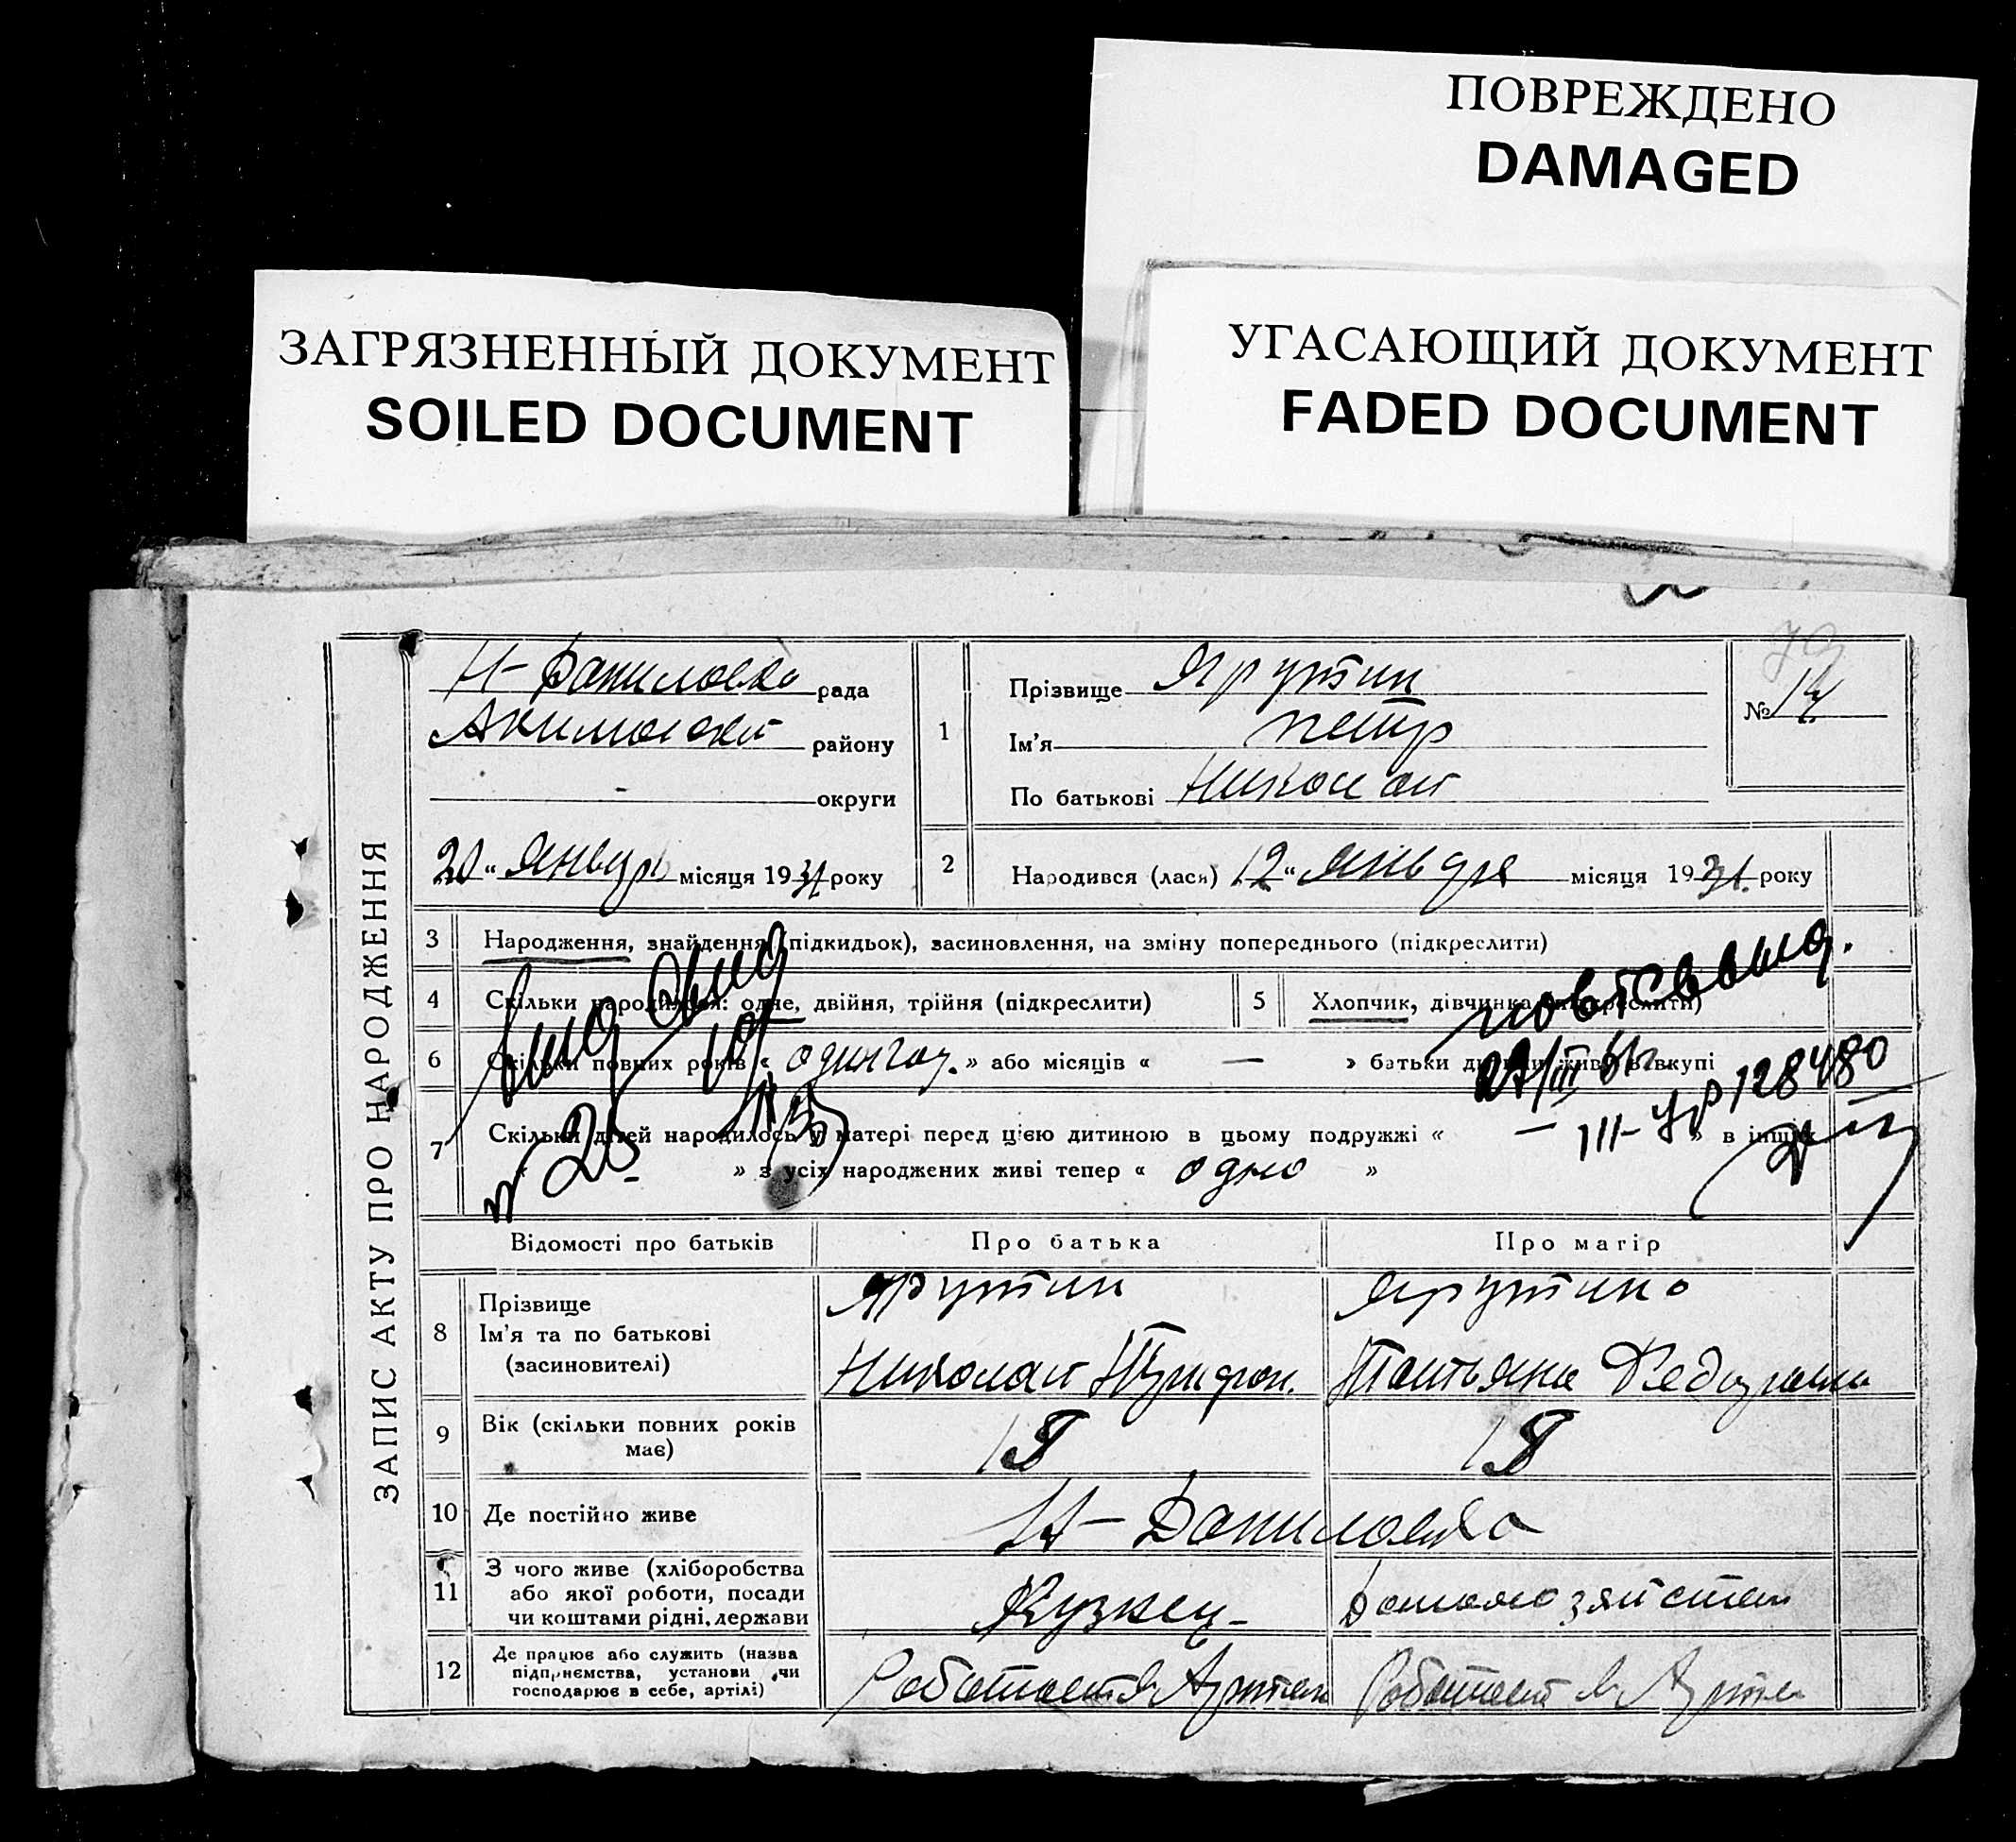 ПОВРЕЖДЕНО
DAMAGED
ЗАГРЯЗНЕННЫЙ ДОКУМЕНТ
SOILED DOCUMENT
УГАСАЮЩИЙ ДОКУМЕНТ
FADED DOCUMENT
ЗАПИС АКТУ ПРО НАРОДЖЕННЯ
Н-Даниловка рада
району
округи
20 " январь місяця 1931 року
1
Прізвище Ярутин
Ім'я Петр
По батькові Николай
№ 14
2 Народився (лась) 12 " января місяця 1931 року
3 Народження, знайдення (підкидьок), засиновлення, на зміну попереднього (підкреслити)
4 Скільки народилося: одне, двійня, трійня (підкреслити)
5 Хлопчик, дівчинка (підкреслити)
6 Скільки повних років « один год. » або місяців « — » батьки дитини живуть вкупі
7 Скільки дітей народилось у матері перед цією дитиною в цьому подружжі « — » в інших
« » з усіх народжених живі тепер « одно »
№ 25
повт свыид.
III-УР 128480
Відомості про батьків
Про батька
Про матір
8 Прізвище
Ім'я та по батькові
(засиновителі)
Ярутин
Николай
Ярутина
Татьяна Федоровна
9 Вік (скільки повних років має)
10 Де постійно живе
Н-Даниловка
11 З чого живе (хліборобства
або якої роботи, посади
чи коштами рідні, держави
Кузнец
12 Де працює або служить (назва
підприємства, установи чи
господарює в себе, артілі)
Работает в Артели
Работает в Артели